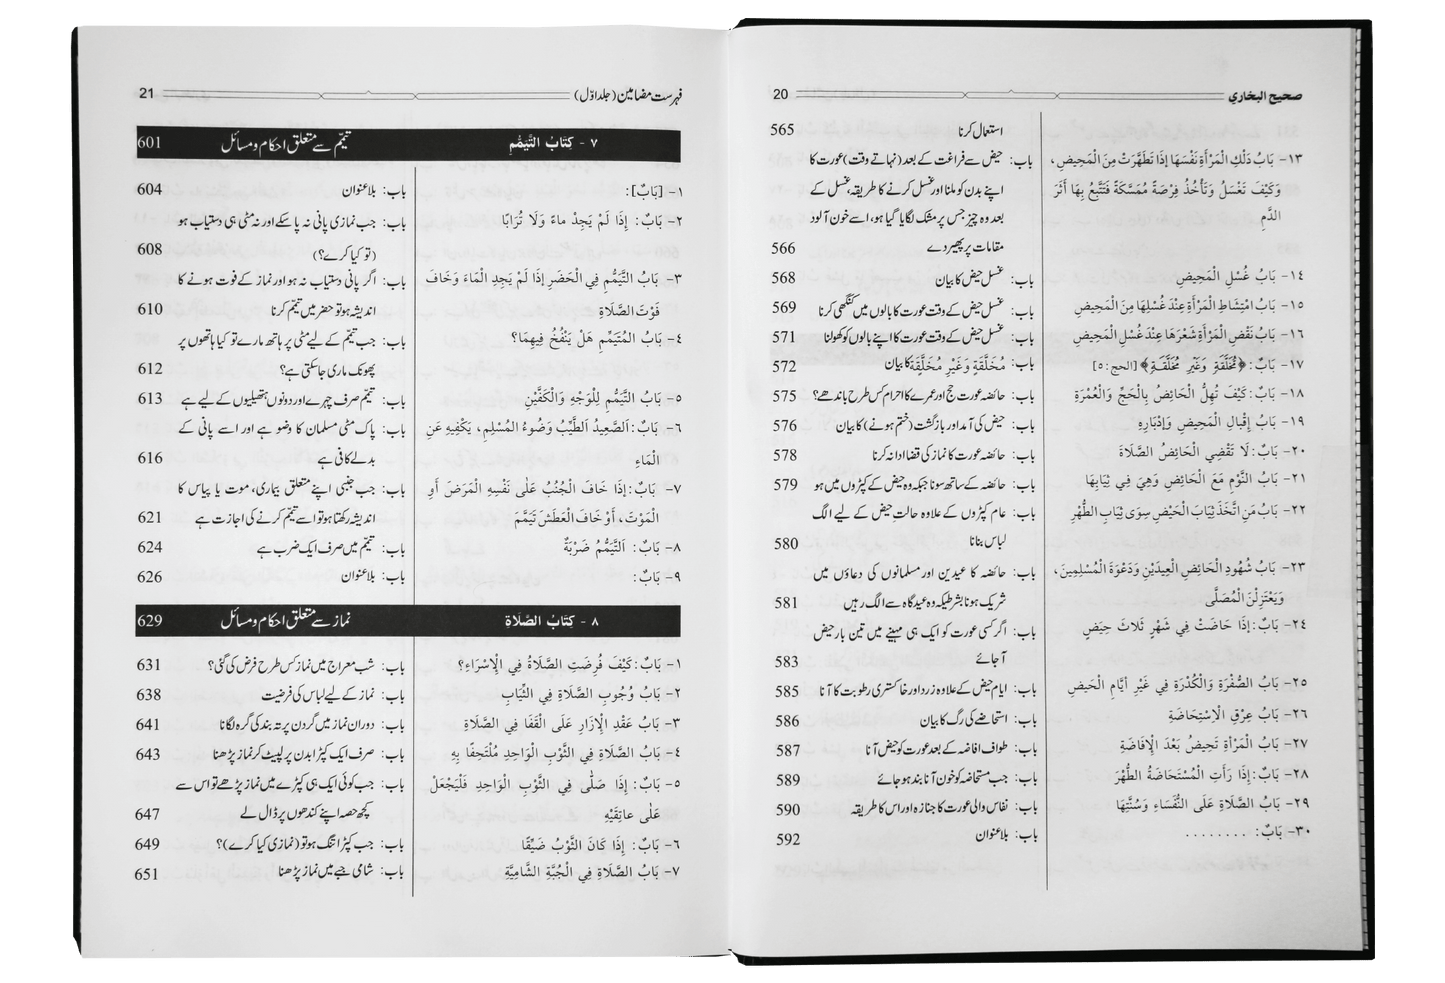 صحيح البخاري 20
استعمال کرنا 565
١٣- بَابُ دَلْكِ الْمَرْأَةِ نَفْسَهَا إِذَا تَطَهَّرَتْ مِنَ الْمَحِيضِ، باب: حیض سے فراغت کے بعد (نہاتے وقت) عورت کا
وَكَيْفَ تَغْسَلُ وَتَأْخُذُ فِرْصَةً مُمَسَّكَةً فَتَتَّبِعُ بِهَا أَثَرَ اپنے بدن کو ملنا اور غسل کرنے کا طریقہ، غسل کے
الدَّمِ بعد وہ چیز جس پر مشک لگایا گیا ہو، اسے خون آلود
مقامات پر پھیر دے 566
١٤- بَابُ غُسْلِ الْمَحِيضِ باب: غسل حیض کا بیان 568
١٥- بَابُ امْتِشَاطِ الْمَرْأَةِ عِنْدَ غُسْلِهَا مِنَ الْمَحِيضِ باب: غسل حیض کے وقت عورت کا بالوں میں کنگھی کرنا 569
١٦- بَابُ نَقْضِ الْمَرْأَةِ شَعْرَهَا عِنْدَ غُسْلِ الْمَحِيضِ باب: غسل حیض کے وقت عورت کا اپنے بالوں کو کھولنا 571
١٧- بَابٌ: ﴿مُخَلَّقَةٍ وَغَيْرِ مُخَلَّقَةٍ﴾ [الحج: ٥] باب: مُخَلَّقَةٍ وَغَيْرِ مُخَلَّقَةٍ کا بیان 572
١٨- بَابٌ: كَيْفَ تُهِلُّ الْحَائِضُ بِالْحَجِّ وَالْعُمْرَةِ باب: حائضہ عورت حج اور عمرے کا احرام کس طرح باندھے؟ 575
١٩- بَابُ إِقْبَالِ الْمَحِيضِ وَإِدْبَارِهِ باب: حیض کی آمد اور بازگشت (ختم ہونے) کا بیان 576
٢٠- بَابٌ: لَا تَقْضِي الْحَائِضُ الصَّلَاةَ باب: حائضہ عورت کا نماز کی قضا ادا نہ کرنا 578
٢١- بَابُ النَّوْمِ مَعَ الْحَائِضِ وَهِيَ فِي ثِيَابِهَا باب: حائضہ کے ساتھ سونا جبکہ وہ حیض کے کپڑوں میں ہو 579
٢٢- بَابُ مَنِ اتَّخَذَ ثِيَابَ الْحَيْضِ سِوَى ثِيَابِ الطُّهْرِ باب: عام کپڑوں کے علاوہ حالتِ حیض کے لیے الگ
لباس بنانا 580
٢٣- بَابُ شُهُودِ الْحَائِضِ الْعِيدَيْنِ وَدَعْوَةَ الْمُسْلِمِينَ، باب: حائضہ کا عیدین اور مسلمانوں کی دعاؤں میں
وَيَعْتَزِلْنَ الْمُصَلَّى شریک ہونا بشرطیکہ وہ عیدگاہ سے الگ رہیں 581
٢٤- بَابٌ: إِذَا حَاضَتْ فِي شَهْرٍ ثَلَاثَ حِيَضٍ باب: اگر کسی عورت کو ایک ہی مہینے میں تین بار حیض
آ جائے 583
٢٥- بَابُ الصُّفْرَةِ وَالْكُدْرَةِ فِي غَيْرِ أَيَّامِ الْحَيْضِ باب: ایام حیض کے علاوہ زرد اور خاکستری رطوبت کا آنا 585
٢٦- بَابُ عِرْقِ الْاِسْتِحَاضَةِ باب: استحاضے کی رگ کا بیان 586
٢٧- بَابُ الْمَرْأَةِ تَحِيضُ بَعْدَ الْإِفَاضَةِ باب: طواف افاضہ کے بعد عورت کو حیض آنا 587
٢٨- بَابٌ: إِذَا رَأَتِ الْمُسْتَحَاضَةُ الطُّهْرَ باب: جب مستحاضہ کو خون آنا بند ہو جائے 589
٢٩- بَابُ الصَّلَاةِ عَلَى النُّفَسَاءِ وَسُنَّتِهَا باب: نفاس والی عورت کا جنازہ اور اس کا طریقہ 590
٣٠- بَابٌ: ........ باب: بلا عنوان 592
فہرست مضامین (جلد اوّل) 21
٧ - كِتَابُ التَّيَمُّمِ تیمّم سے متعلق احکام و مسائل 601
١- [بَابٌ]: باب: بلا عنوان 604
٢- بَابٌ: إِذَا لَمْ يَجِدْ مَاءً وَلَا تُرَابًا باب: جب نمازی پانی نہ پا سکے اور نہ مٹی ہی دستیاب ہو
(تو کیا کرے؟) 608
٣- بَابُ التَّيَمُّمِ فِي الْحَضَرِ إِذَا لَمْ يَجِدِ الْمَاءَ وَخَافَ باب: اگر پانی دستیاب نہ ہو اور نماز کے فوت ہونے کا
فَوْتَ الصَّلَاةِ اندیشہ ہو تو حضر میں تیمّم کرنا 610
٤- بَابُ الْمُتَيَمِّمِ هَلْ يَنْفُخُ فِيهِمَا؟ باب: جب تیمّم کے لیے مٹی پر ہاتھ مارے تو کیا ہاتھوں پر
پھونک ماری جا سکتی ہے؟ 612
٥- بَابُ التَّيَمُّمِ لِلْوَجْهِ وَالْكَفَّيْنِ باب: تیمّم صرف چہرے اور دونوں ہتھیلیوں کے لیے ہے 613
٦- بَابٌ: اَلصَّعِيدُ الطَّيِّبُ وَضُوءُ الْمُسْلِمِ، يَكْفِيهِ عَنِ باب: پاک مٹی مسلمان کا وضو ہے اور اسے پانی کے
الْمَاءِ بدلے کافی ہے 616
٧- بَابٌ: إِذَا خَافَ الْجُنُبُ عَلَى نَفْسِهِ الْمَرَضَ أَوِ باب: جب جنبی اپنے متعلق بیماری، موت یا پیاس کا
الْمَوْتَ، أَوْ خَافَ الْعَطَشَ تَيَمَّمَ اندیشہ رکھتا ہو تو اسے تیمّم کرنے کی اجازت ہے 621
٨- بَابٌ: اَلتَّيَمُّمُ ضَرْبَةٌ باب: تیمّم میں صرف ایک ضرب ہے 624
٩- بَابٌ: باب: بلا عنوان 626
٨ - كِتَابُ الصَّلَاةِ نماز سے متعلق احکام و مسائل 629
١- بَابٌ: كَيْفَ فُرِضَتِ الصَّلَاةُ فِي الْإِسْرَاءِ؟ باب: شب معراج میں نماز کس طرح فرض کی گئی؟ 631
٢- بَابُ وُجُوبِ الصَّلَاةِ فِي الثِّيَابِ باب: نماز کے لیے لباس کی فرضیت 638
٣- بَابُ عَقْدِ الْإِزَارِ عَلَى الْقَفَا فِي الصَّلَاةِ باب: دوران نماز میں گردن پر تہ بند کی گرہ لگانا 641
٤- بَابُ الصَّلَاةِ فِي الثَّوْبِ الْوَاحِدِ مُلْتَحِفًا بِهِ باب: صرف ایک کپڑا بدن پر لپیٹ کر نماز پڑھنا 643
٥- بَابٌ: إِذَا صَلَّى فِي الثَّوْبِ الْوَاحِدِ فَلْيَجْعَلْ باب: جب کوئی ایک ہی کپڑے میں نماز پڑھے تو اس سے
عَلَى عَاتِقَيْهِ کچھ حصہ اپنے کندھوں پر ڈال لے 647
٦- بَابٌ: إِذَا كَانَ الثَّوْبُ ضَيِّقًا باب: جب کپڑا تنگ ہو تو (نمازی کیا کرے)؟ 649
٧- بَابُ الصَّلَاةِ فِي الْجُبَّةِ الشَّامِيَّةِ باب: شامی جبے میں نماز پڑھنا 651